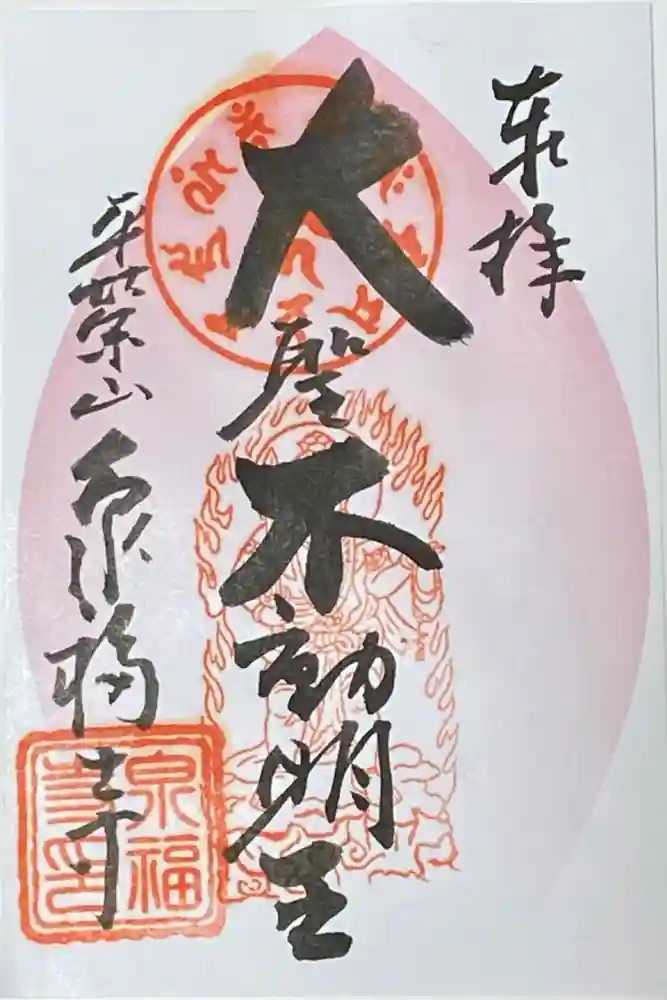 奉拝
大聖不動明王
平塩山泉福寺
泉福
寺印